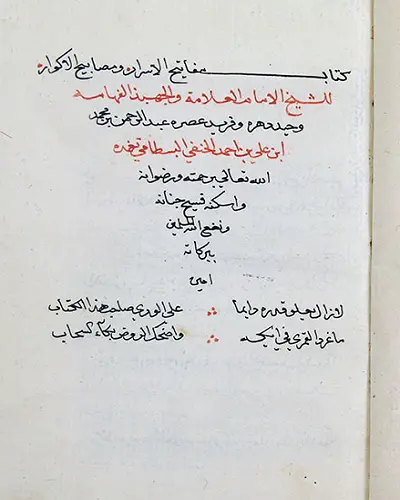 كتاب مفاتيح الاسرار ومصابيح الاكوار
للشيخ الامام العلامة والجهبذ الفهامه
وحيد دهره وفريد عصره عبد الرحمن بن محمد
ابن علي بن احمد الحنفي البسطامي تغمده
الله تعالى برحمته ورضوانه
واسكنه فسيح جنانه
ونفع الله المسلمين
ببركاته
امين
لازال يعلو قدره دايما على الورى صاحب هذا الكتاب
ما غرد القمري في ايكه واضحك الروض بكاء السحاب